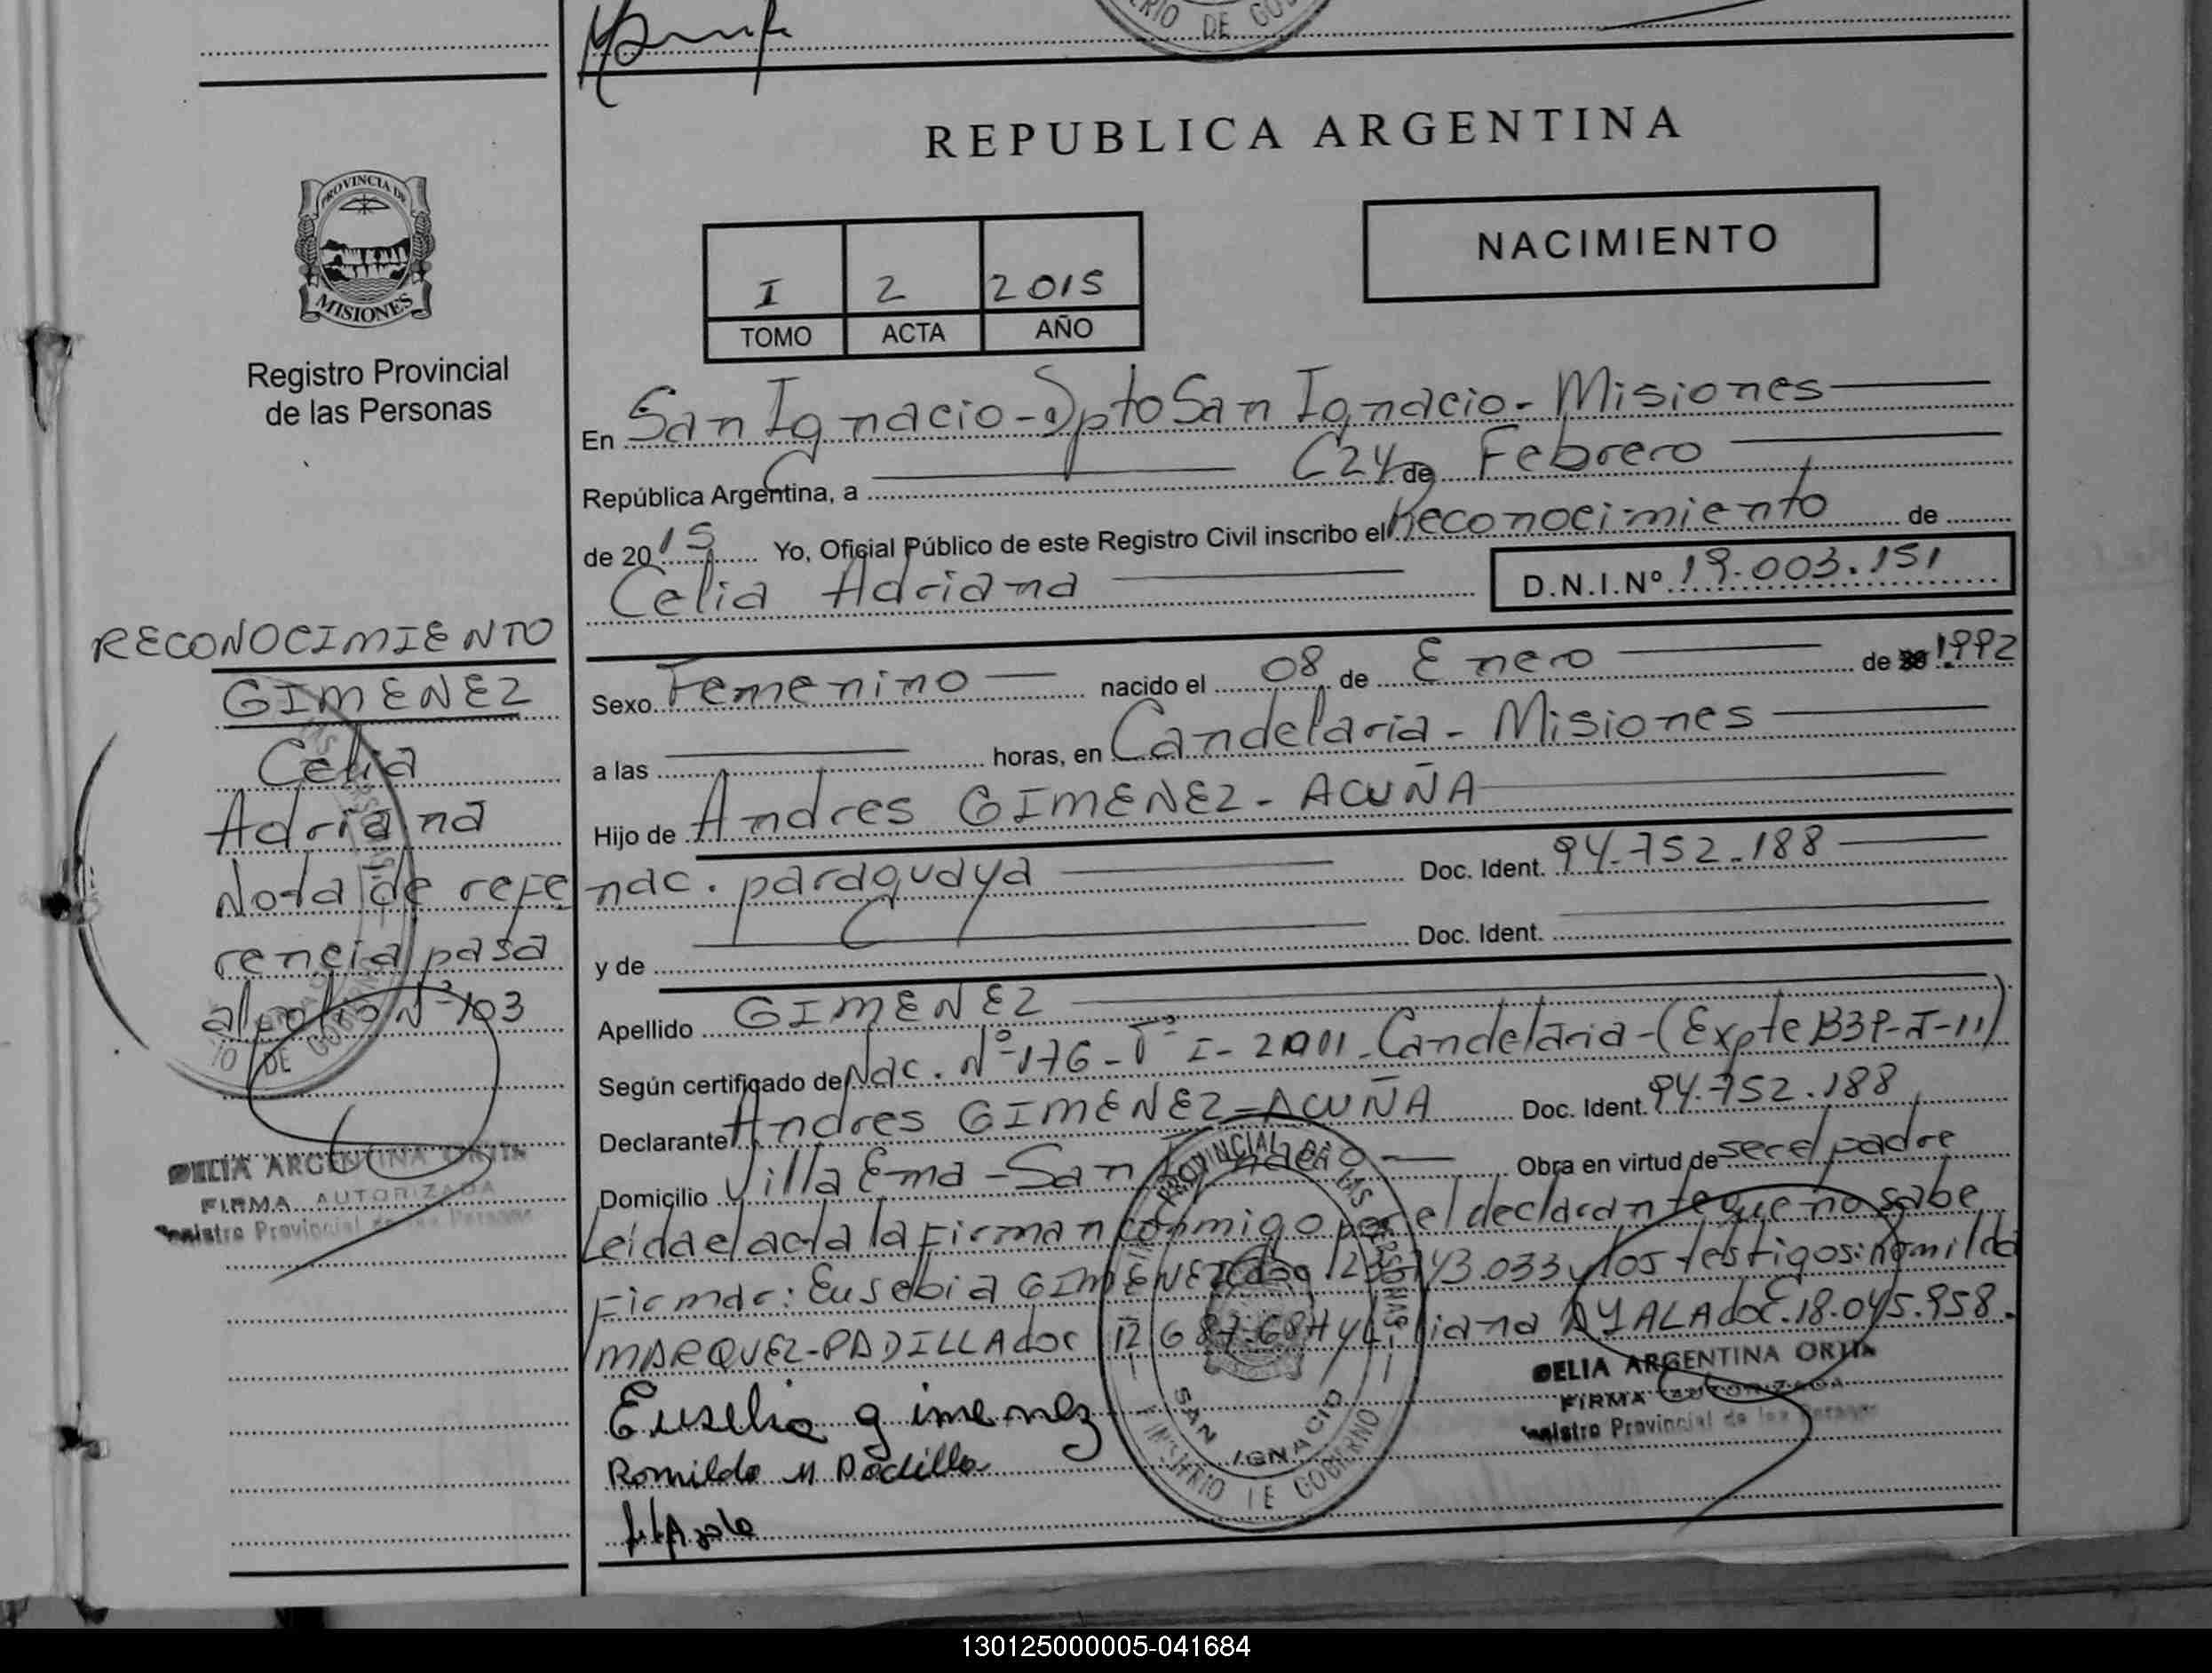 MINISTERIO DE GOBIERNO
REPUBLICA ARGENTINA
PROVINCIA DE
MISIONES
Registro Provincial
de las Personas
NACIMIENTO
I 2 2015
TOMO ACTA AÑO
En San Ignacio - Dpto San Ignacio - Misiones
República Argentina, a 24 de Febrero
de 2015 Yo, Oficial Público de este Registro Civil inscribo el Reconocimiento de
Celia Adriana D.N.I.Nº 19.003.151
RECONOCIMIENTO
GIMENEZ
Celia
Adriana
Nota de refe
rencia pasa
al folio Nº 103
DELIA ARGENTINA ORTIZ
FIRMA AUTORIZADA
Registro Provincial de las Personas
Sexo Femenino nacido el 08 de Enero de 1992
a las horas, en Candelaria - Misiones
Hijo de Andres GIMENEZ - ACUÑA
nac. paraguaya Doc. Ident. 94.752.188
y de Doc. Ident.
Apellido GIMENEZ
Según certificado de Nac. Nº 176 - Tº I - Candelaria -
Declarante Andres GIMENEZ - ACUÑA Doc. Ident. 94.752.188
Domicilio Villa Ema - San Ignacio - Obra en virtud de ser el padre
Leida el acta la firman conmigo por el declarante que no sabe
firmar: Eusebia GIMENEZ y los testigos: Romilda
MARQUEZ-PADILLA doc y Liliana AYALA doc. 18.045.958.
Eusebia gimenez
Romilda M Padilla
REGISTRO PROVINCIAL DE LAS PERSONAS
SAN IGNACIO
MINISTERIO DE GOBIERNO
DELIA ARGENTINA ORTIZ
FIRMA AUTORIZADA
Registro Provincial de las Personas
130125000005-041684